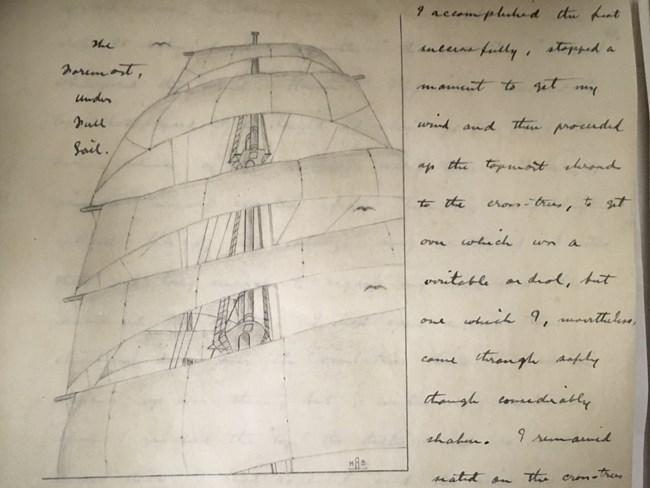 The
Foremast,
under
Full
Sail.
HRB
I accomplished the feat
successfully, stopped a
moment to get my
wind and then proceeded
up the topmast shrouds
to the cross-trees, to get
over which was a
veritable ordeal, but
one which I, nevertheless,
came through safely
though considerably
shaken. I remained
seated on the cross-trees